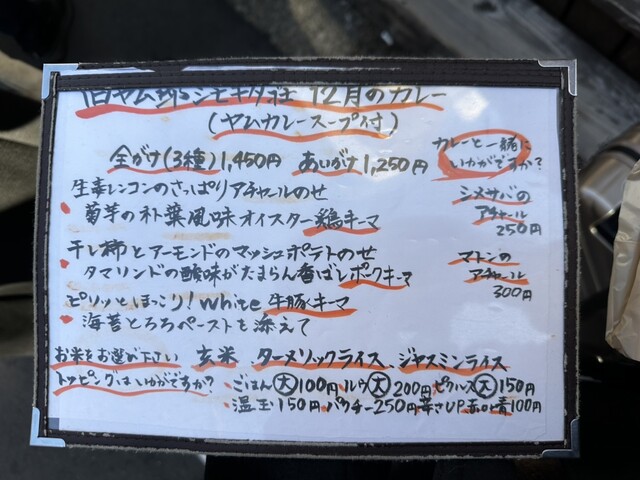 旧ヤム邸シモキタ荘 12月のカレー
(ヤムカレースープ付)
全がけ(3種)1,450円 あいがけ1,250円
カレーと一緒に
いかがですか?
生姜レンコンのさっぱりアチャールのせ
菊芋の朴葉風味オイスター鶏キーマ
シメサバの
アチャール
250円
干し柿とアーモンドのマッシュポテトのせ
タマリンドの酸味がたまらん香ばしポークキーマ
マトンの
アチャール
300円
ピリッとほっこり!White牛豚キーマ
海苔とろろペーストを添えて
お米をお選び下さい 玄米 ターメリックライス、ジャスミンライス
トッピングはいかがですか? ごはん大100円 ルウ大200円 ピクルス大150円
温玉150円 パクチー250円 辛さUP 赤or青100円